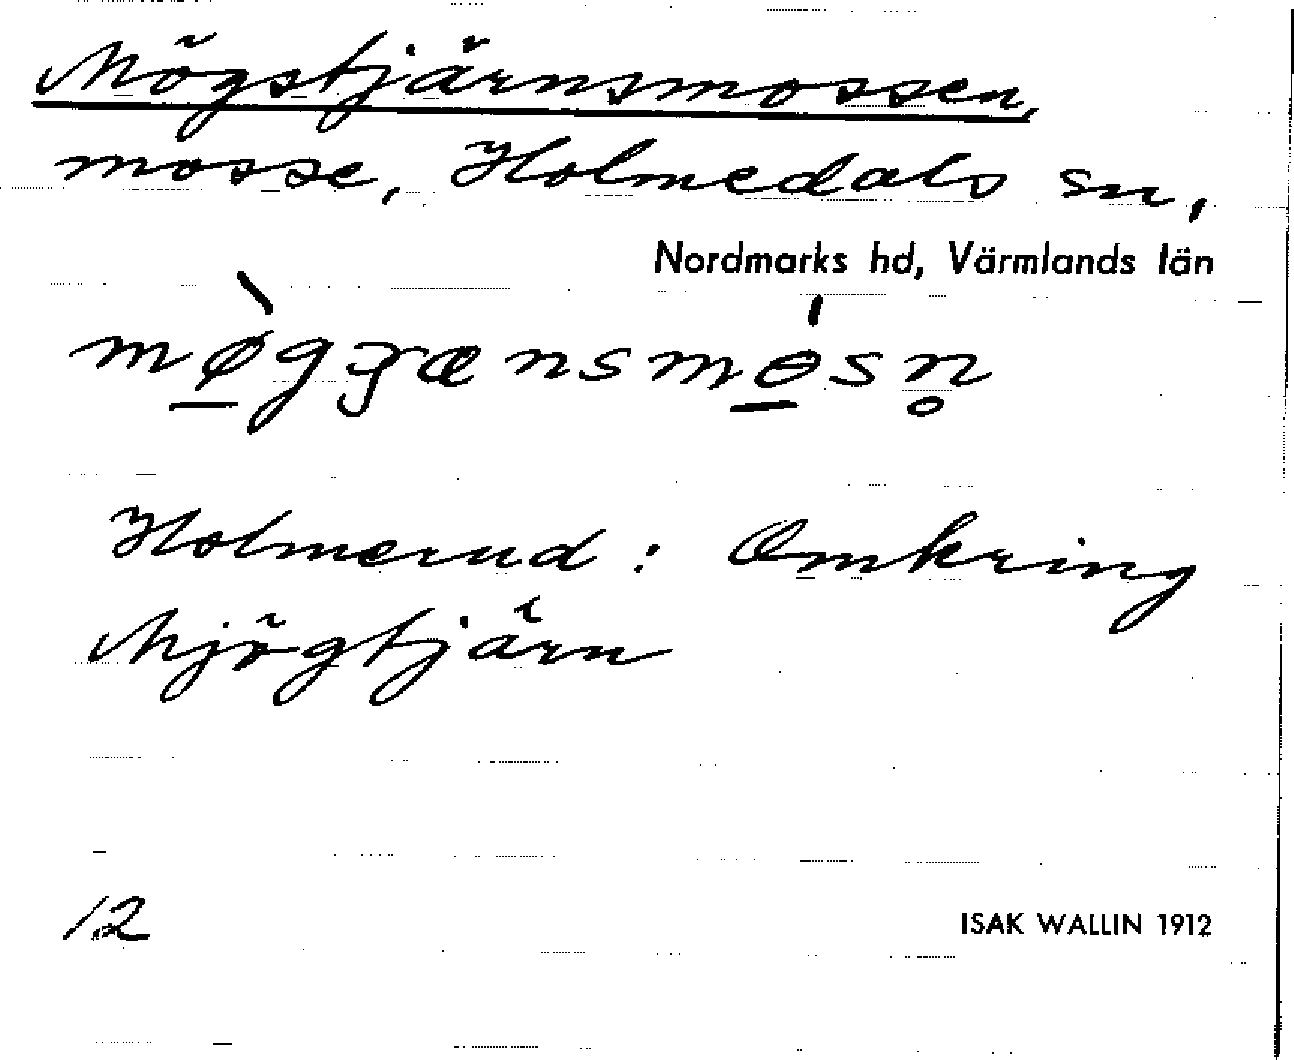 Mögstjärnsmossen,
mosse, Holmedals sn,
Nordmarks hd, Värmlands län
Holmerud : Omkring
Mjögtjärn
12
ISAK WALLIN 1912